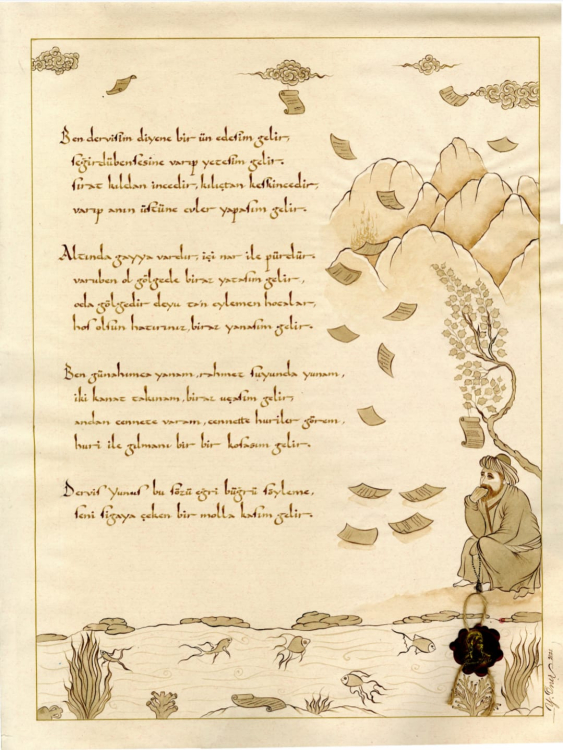 Ben dervişim diyene bir ün edesim gelir,
seğirdüben sesine varıp yetesim gelir.
sırat kıldan incedir, kılıçtan keskincedir,
varıp anın üstüne evler yapasım gelir.
Altında gayya vardır, içi nar ile pürdür.
varuben ol gölgede biraz yatasım gelir,
oda gölgedir deyu ta'n eylemen hocalar,
hoş olsun hatırınız, biraz yanasım gelir.
Ben günahımca yanam, rahmet suyunda yunam,
iki kanat takınam, biraz uçasım gelir,
andan cennete varam, cennette huriler görem,
huri ile gılmanı bir bir koşasım gelir.
Derviş Yunus bu sözü eğri büğrü söyleme,
seni sigaya çeken bir molla kasım gelir.